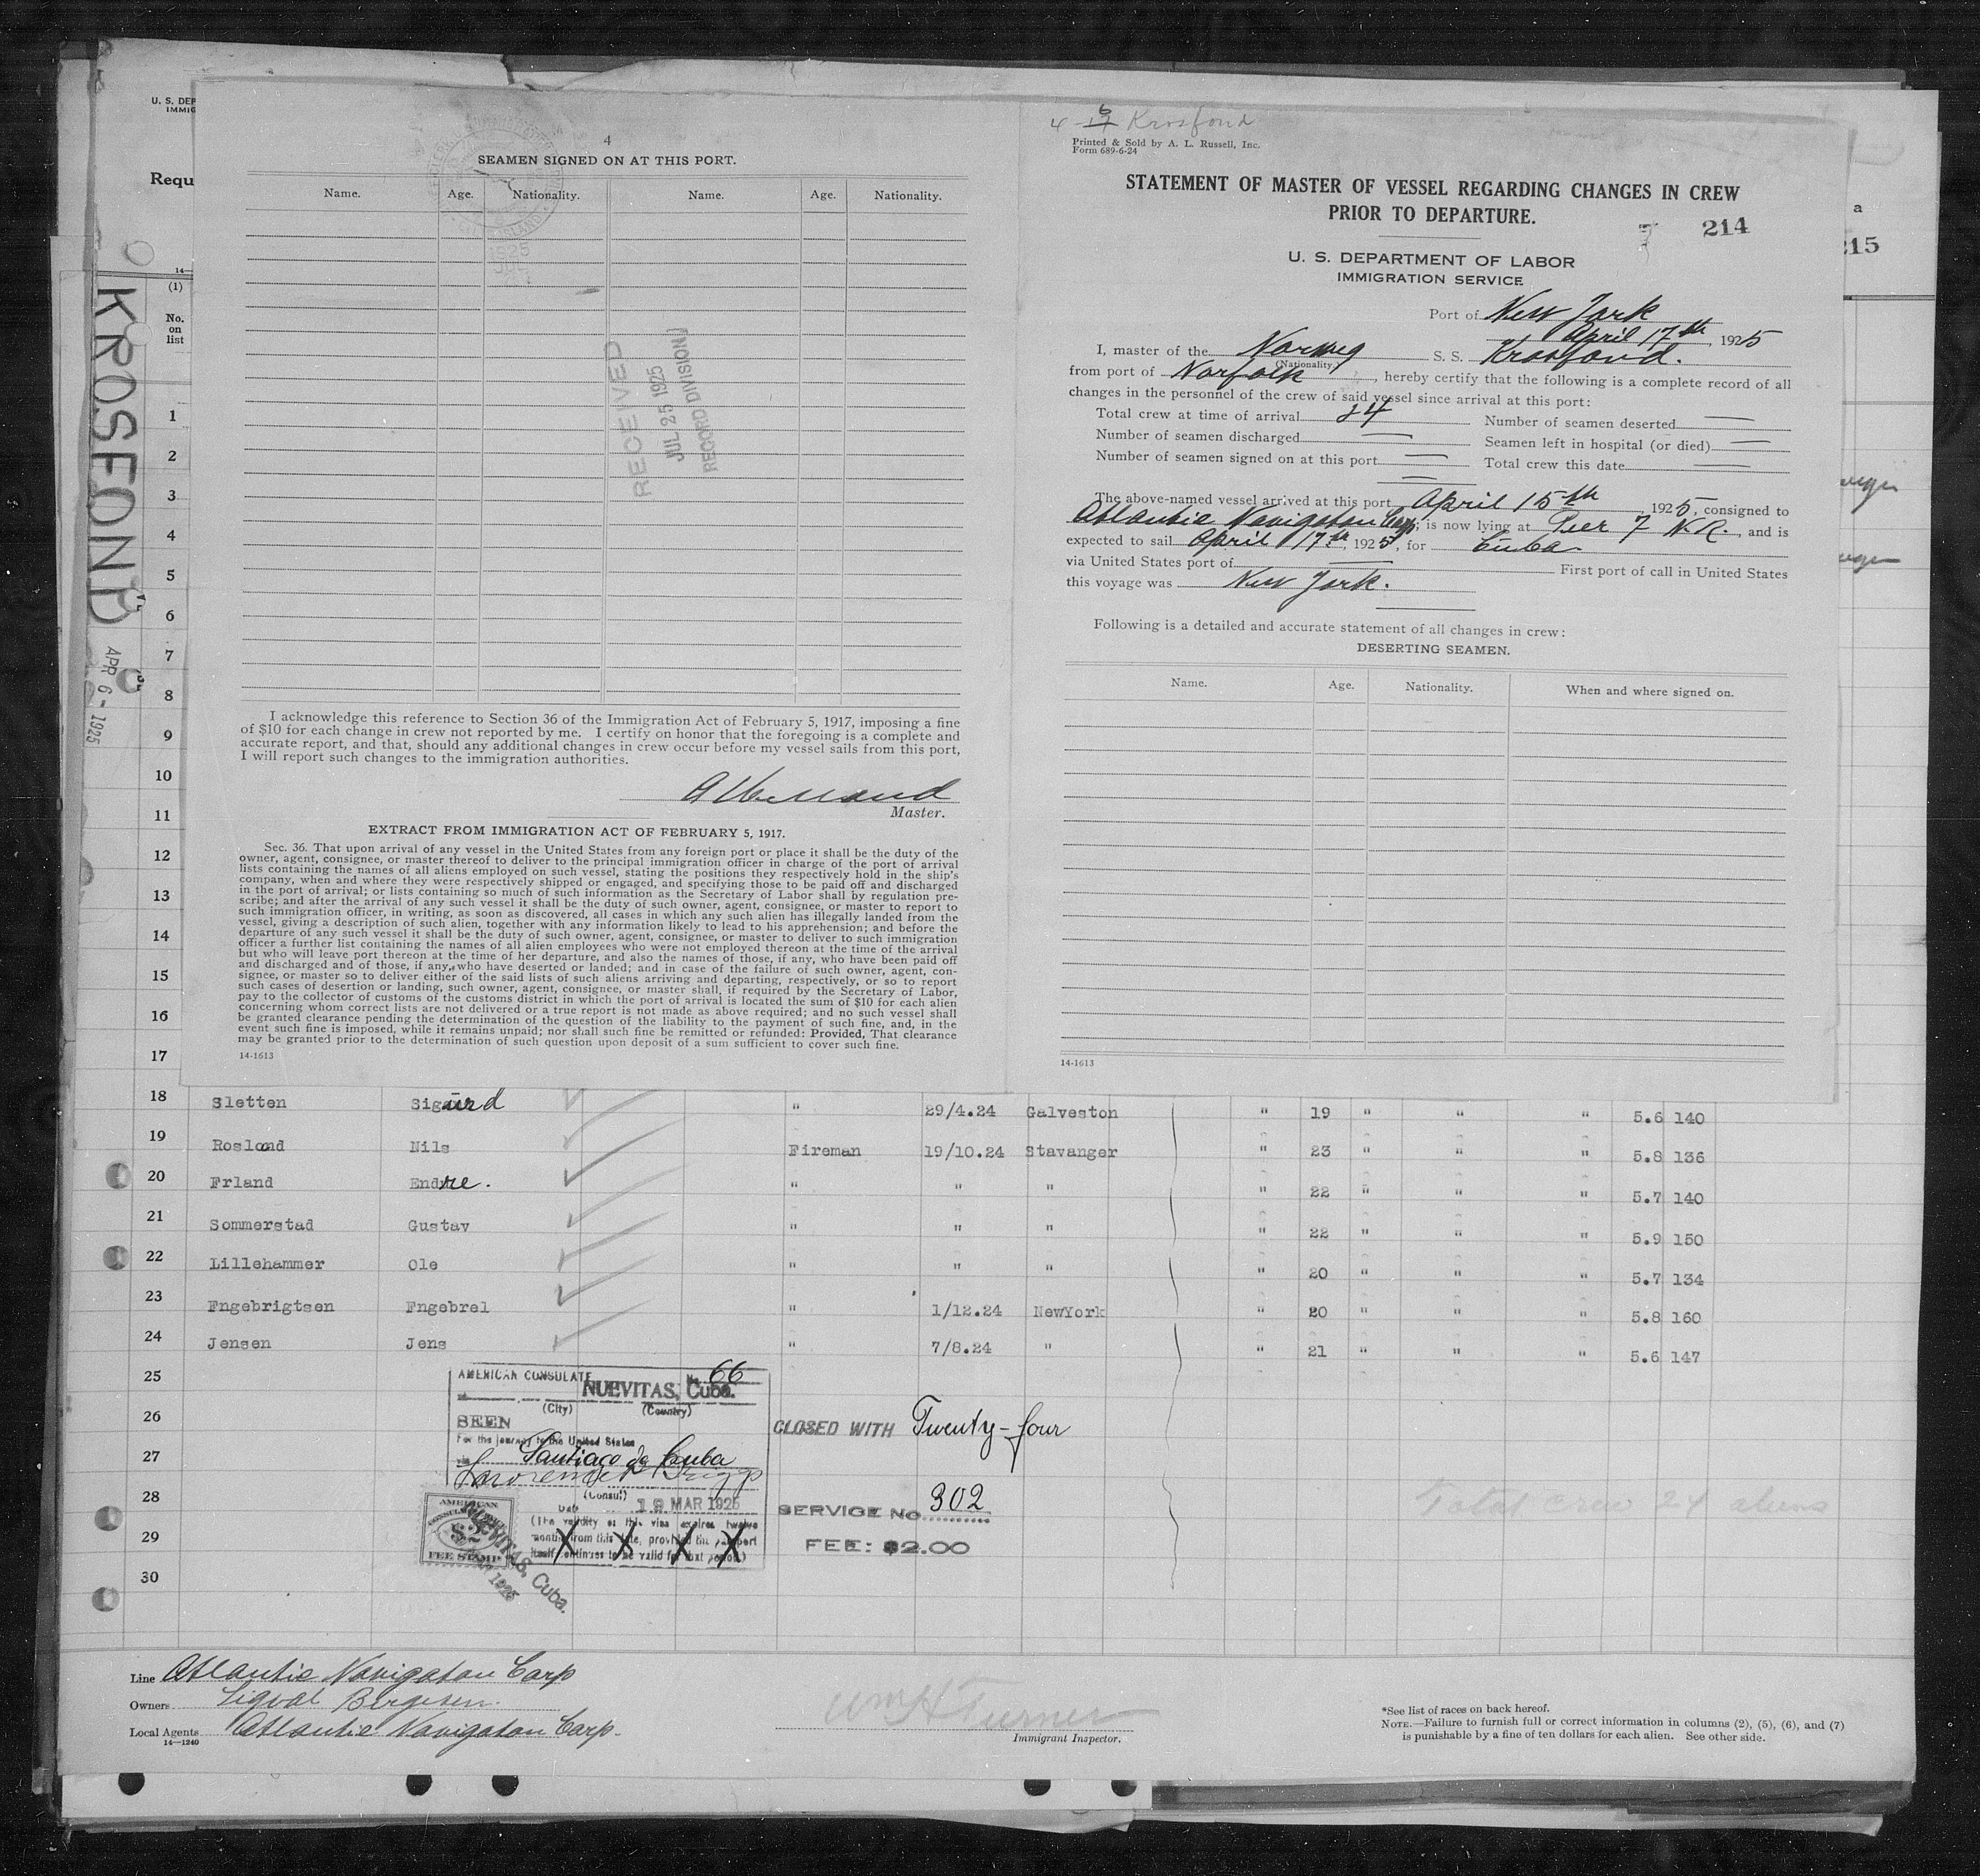 U. S. DEP
IMMIG
Requ
14—
(1)
No.
on
list
KROSFOND
APR 6 - 1925
4
SEAMEN SIGNED ON AT THIS PORT.
Name. Age. Nationality. Name. Age. Nationality.
1925
RECEIVED
JUL 25 1925
RECORD DIVISION
I acknowledge this reference to Section 36 of the Immigration Act of February 5, 1917, imposing a fine
of $10 for each change in crew not reported by me. I certify on honor that the foregoing is a complete and
accurate report, and that, should any additional changes in crew occur before my vessel sails from this port,
I will report such changes to the immigration authorities.
Master.
EXTRACT FROM IMMIGRATION ACT OF FEBRUARY 5, 1917.
Sec. 36. That upon arrival of any vessel in the United States from any foreign port or place it shall be the duty of the
owner, agent, consignee, or master thereof to deliver to the principal immigration officer in charge of the port of arrival
lists containing the names of all aliens employed on such vessel, stating the positions they respectively hold in the ship's
company, when and where they were respectively shipped or engaged, and specifying those to be paid off and discharged
in the port of arrival; or lists containing so much of such information as the Secretary of Labor shall by regulation pre-
scribe; and after the arrival of any such vessel it shall be the duty of such owner, agent, consignee, or master to report to
such immigration officer, in writing, as soon as discovered, all cases in which any such alien has illegally landed from the
vessel, giving a description of such alien, together with any information likely to lead to his apprehension; and before the
departure of any such vessel it shall be the duty of such owner, agent, consignee, or master to deliver to such immigration
officer a further list containing the names of all alien employees who were not employed thereon at the time of the arrival
but who will leave port thereon at the time of her departure, and also the names of those, if any, who have been paid off
and discharged and of those, if any, who have deserted or landed; and in case of the failure of such owner, agent, con-
signee, or master so to deliver either of the said lists of such aliens arriving and departing, respectively, or so to report
such cases of desertion or landing, such owner, agent, consignee, or master shall, if required by the Secretary of Labor,
pay to the collector of customs of the customs district in which the port of arrival is located the sum of $10 for each alien
concerning whom correct lists are not delivered or a true report is not made as above required; and no such vessel shall
be granted clearance pending the determination of the question of the liability to the payment of such fine, and, in the
event such fine is imposed, while it remains unpaid; nor shall such fine be remitted or refunded: Provided, That clearance
may be granted prior to the determination of such question upon deposit of a sum sufficient to cover such fine.
14-1613
4 - 17 Krosfond
6
Printed & Sold by A. L. Russell, Inc.
Form 689-6-24
STATEMENT OF MASTER OF VESSEL REGARDING CHANGES IN CREW
PRIOR TO DEPARTURE.
214
a
215
U. S. DEPARTMENT OF LABOR
IMMIGRATION SERVICE
Port of New York
April 17th, 1925
I, master of the Norweg S. S. Krosfond.
(Nationality.)
from port of Norfolk, hereby certify that the following is a complete record of all
changes in the personnel of the crew of said vessel since arrival at this port:
Total crew at time of arrival 24 Number of seamen deserted —
Number of seamen discharged — Seamen left in hospital (or died) —
Number of seamen signed on at this port — Total crew this date —
The above-named vessel arrived at this port April 15th, 1925, consigned to
Atlantic Navigaton Corp; is now lying at Pier 7 N.R., and is
expected to sail April 17th, 1925, for Cuba
via United States port of — First port of call in United States
this voyage was New York.
Following is a detailed and accurate statement of all changes in crew:
DESERTING SEAMEN.
Name. Age. Nationality. When and where signed on.
14-1613
1
2
3
4
5
6
7
8
9
10
11
12
13
14
15
16
17
18 Sletten Sigurd " 29/4.24 Galveston " 19 " " " 5.6 140
19 Rosland Nils Fireman 19/10.24 Stavanger " 23 " " " 5.8 136
20 Frland Endre. " " " " 22 " " " 5.7 140
21 Sommerstad Gustav " " " " 22 " " " 5.9 150
22 Lillehammer Ole " " " " 20 " " " 5.7 134
23 Fngebrigtsen Fngebrel " 1/12.24 NewYork " 20 " " " 5.8 160
24 Jensen Jens " 7/8.24 " " 21 " " " 5.6 147
25
26
27
28
29
30
AMERICAN CONSULATE No. 66
NUEVITAS, Cuba.
(City) (Country)
SEEN
For the journey to the United States
Santiago de Cuba
(Consul)
Date 19 MAR 1925
(The validity of this visa expires twelve
months from this date, provided the passport
itself continues to be valid for that period.)
AMERICAN
CONSULAR
$2
FEE STAMP
NUEVITAS, Cuba.
1925
CLOSED WITH Twenty-four
SERVICE No 302
FEE: $2.00
Total crew 24 aliens
Line Atlantic Navigaton Corp
Owners Sigval Bergesen.
Local Agents Atlantic Navigaton Corp.
14—1240
Wm H Turner
Immigrant Inspector.
*See list of races on back hereof.
NOTE.—Failure to furnish full or correct information in columns (2), (5), (6), and (7)
is punishable by a fine of ten dollars for each alien. See other side.